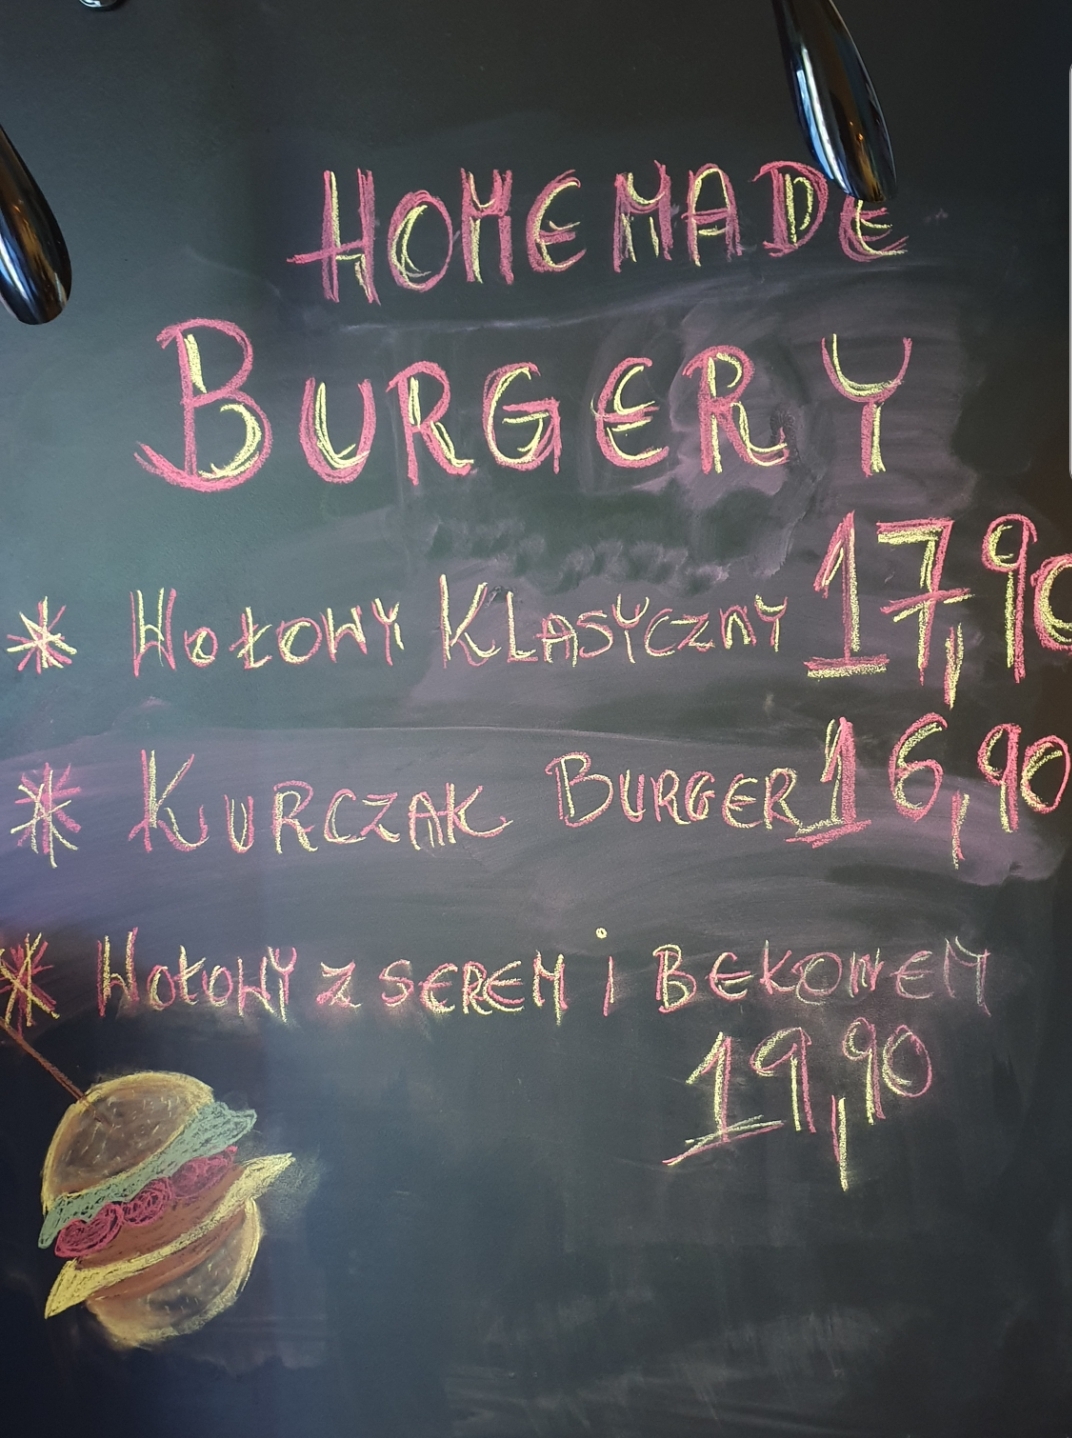 HOMEMADE
BURGERY
* WOŁOWY KLASYCZNY 17,90
* KURCZAK BURGER 16,90
* WOŁOWY Z SEREM i BEKONEM
19,90